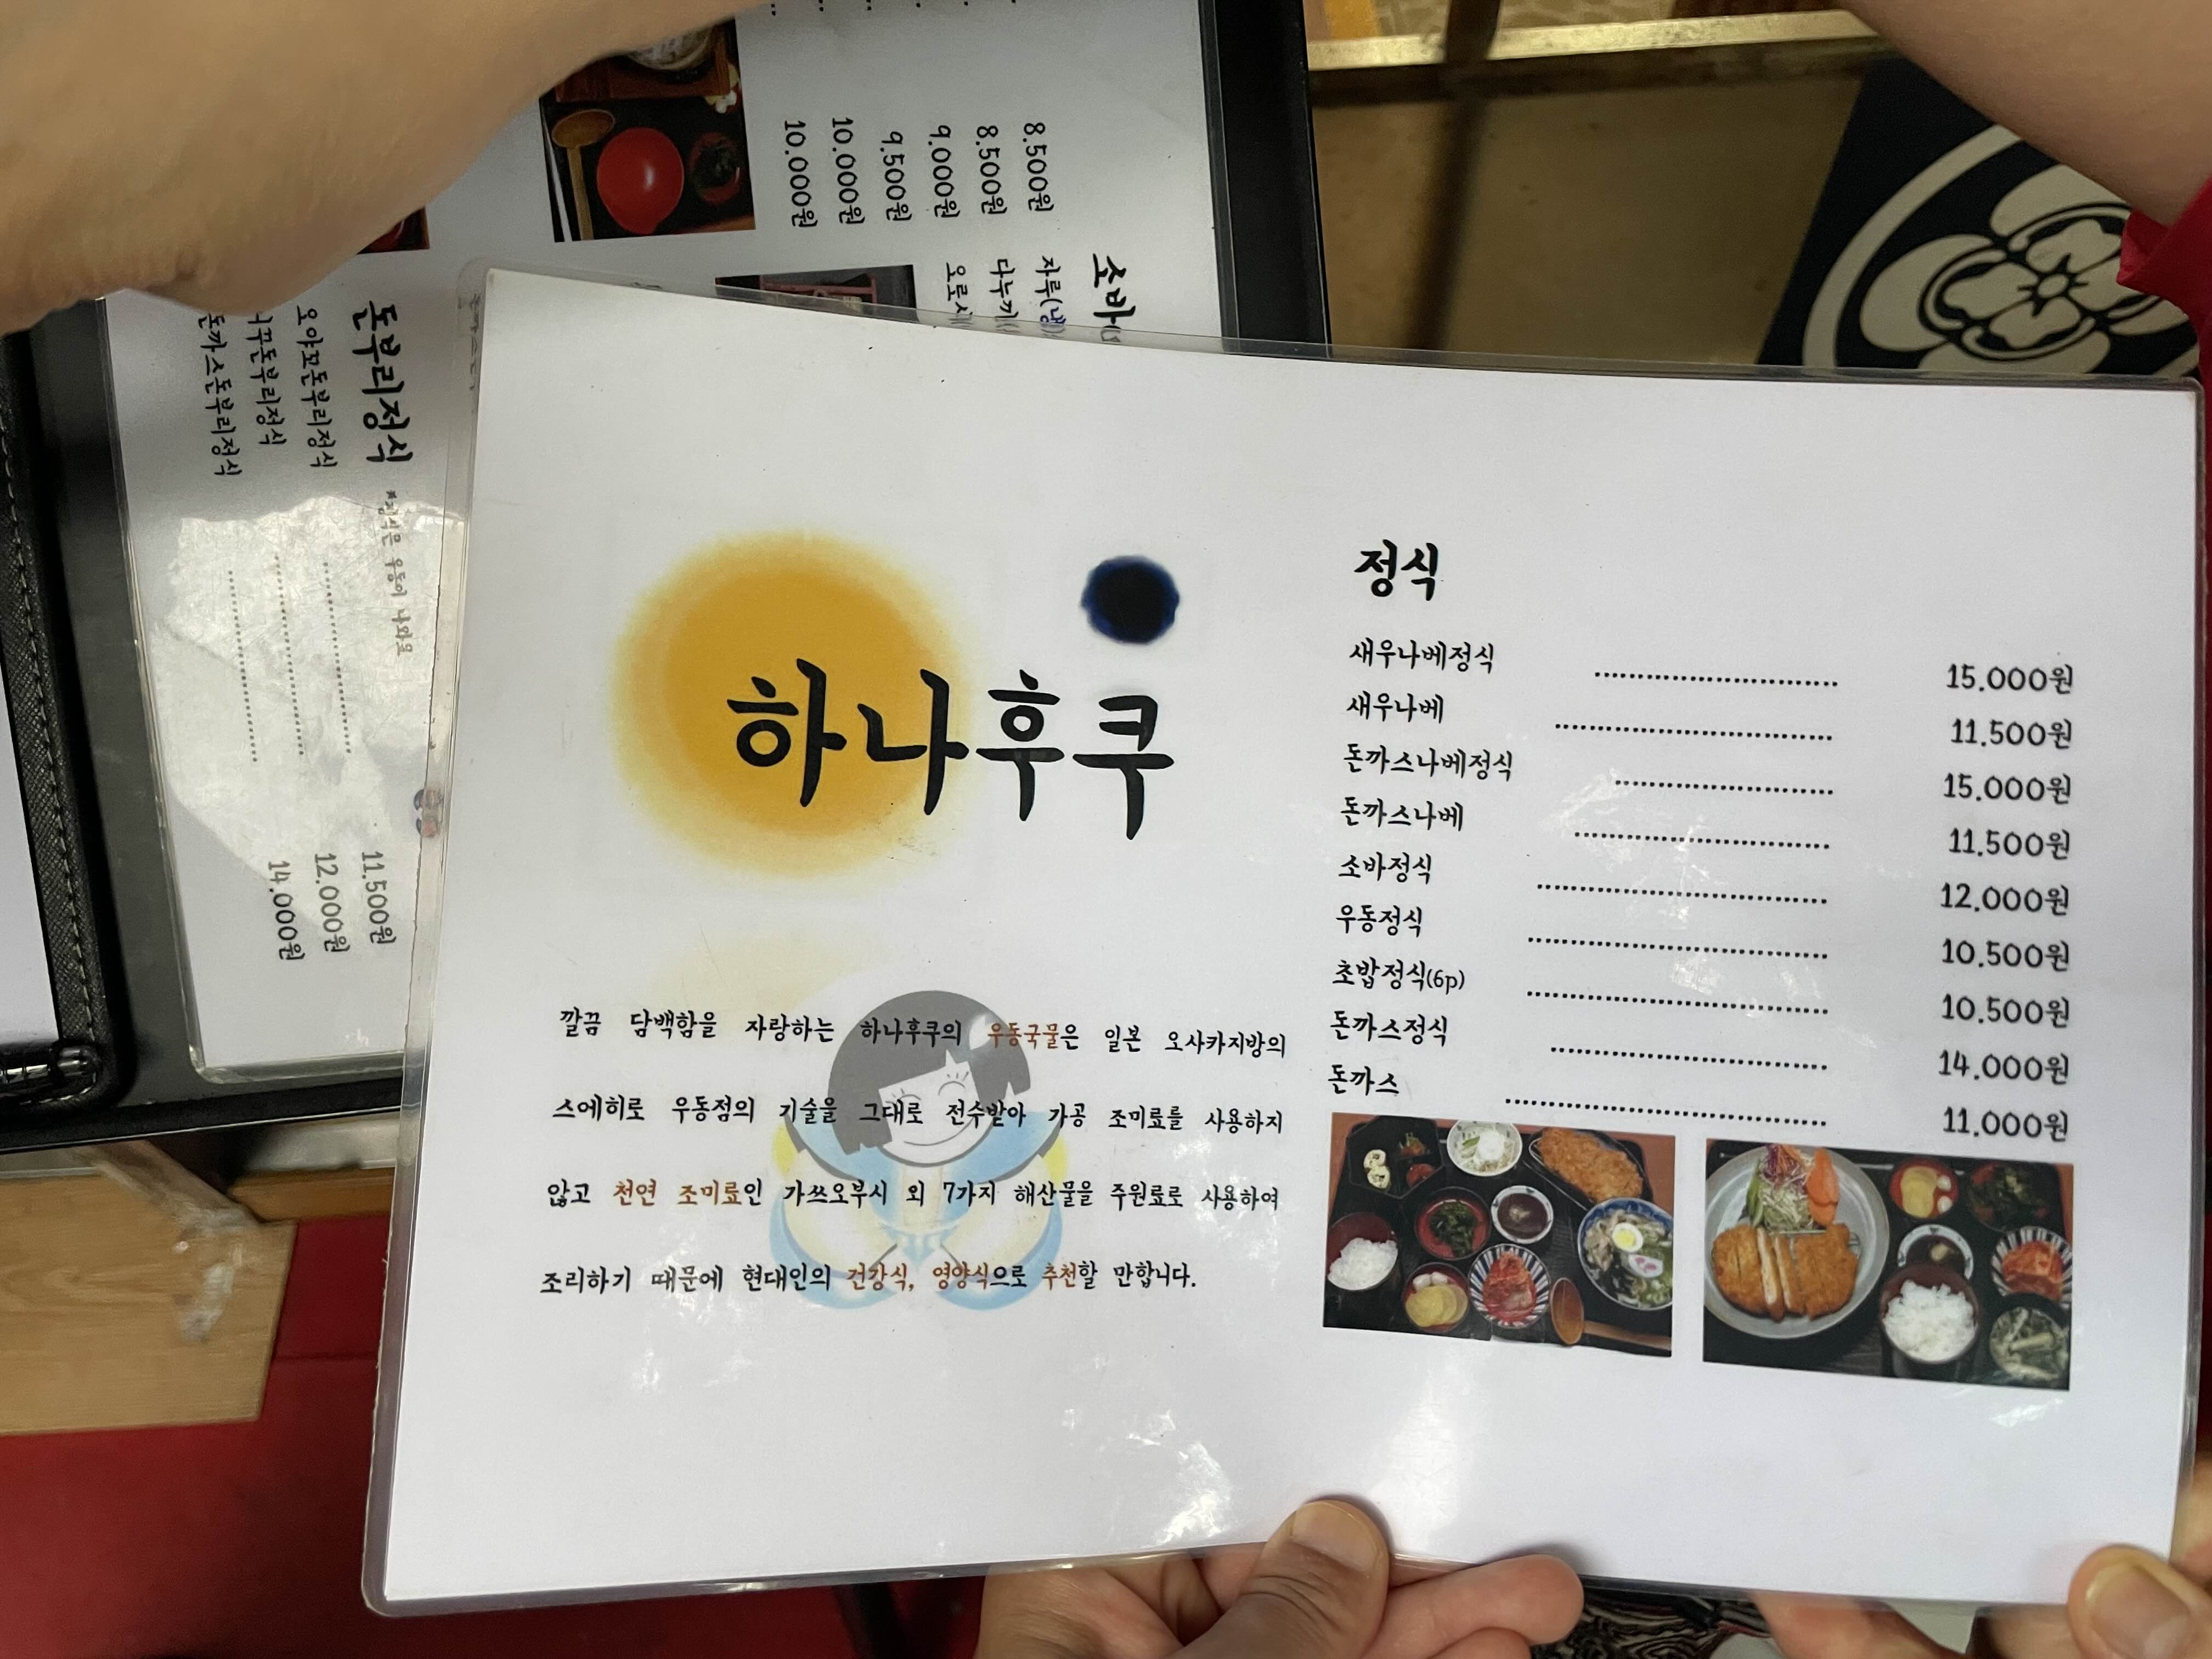 하나후쿠
깔끔 담백함을 자랑하는 하나후쿠의 우동국물은 일본 오사카지방의
스에히로 우동점의 기술을 그대로 전수받아 가공 조미료를 사용하지
않고 천연 조미료인 가쓰오부시 외 7가지 해산물을 주원료로 사용하여
조리하기 때문에 현대인의 건강식, 영양식으로 추천할 만합니다.
정식
새우나베정식 15.000원
새우나베 11.500원
돈까스나베정식 15.000원
돈까스나베 11.500원
소바정식 12.000원
우동정식 10.500원
초밥정식(6p) 10.500원
돈까스정식 14.000원
돈까스 11.000원
8.500원
8.500원
9.000원
9.500원
10.000원
10.000원
소바
자루(냉)
다누끼
오로시
돈부리정식 *정식은 우동이 나와요
오야꼬돈부리정식 11.500원
니꾸돈부리정식 12.000원
돈까스돈부리정식 14.000원